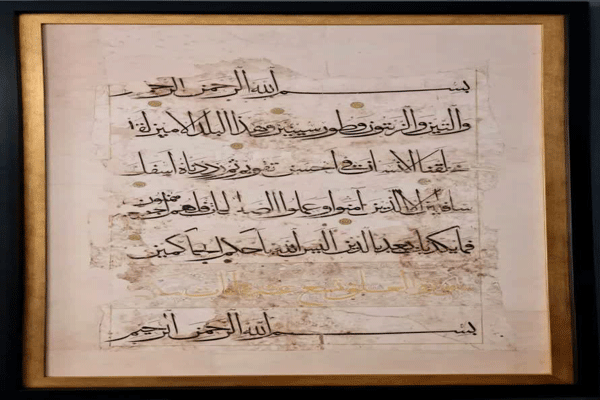 بسم الله الرحمن الرحيم
والتين والزيتون وطور سينين وهذا البلد الامين لقد
خلقنا الانسان في احسن تقويم ثم رددناه اسفل
سافلين الا الذين آمنوا وعملوا الصالحات فلهم اجر غير ممنون
فما يكذبك بعد بالدين اليس الله باحكم الحاكمين
بسم الله الرحمن الرحيم